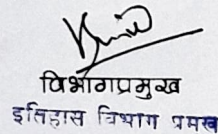 विभागप्रमुख
इतिहास विभाग प्रमुख